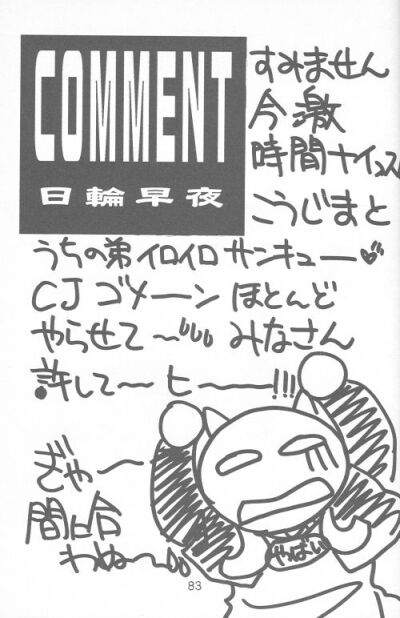 COMMENT
日輪早夜
すみません
今激
時間ナイっス
こうじまと
うちの弟イロイロサンキュー♥
CJゴメーンほとんど
やらせて〜みなさん
許して〜ヒー!!!
ぎゃ〜
間に合
わぬ〜
やばい
83